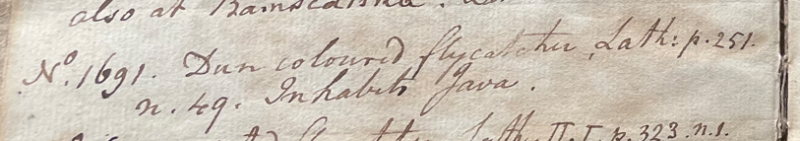 also at
No. 1691. Dun coloured flycatcher, Lath: p. 251.
n. 49. Inhabits Java.
Lath. II. I. p. 323. n. 1.